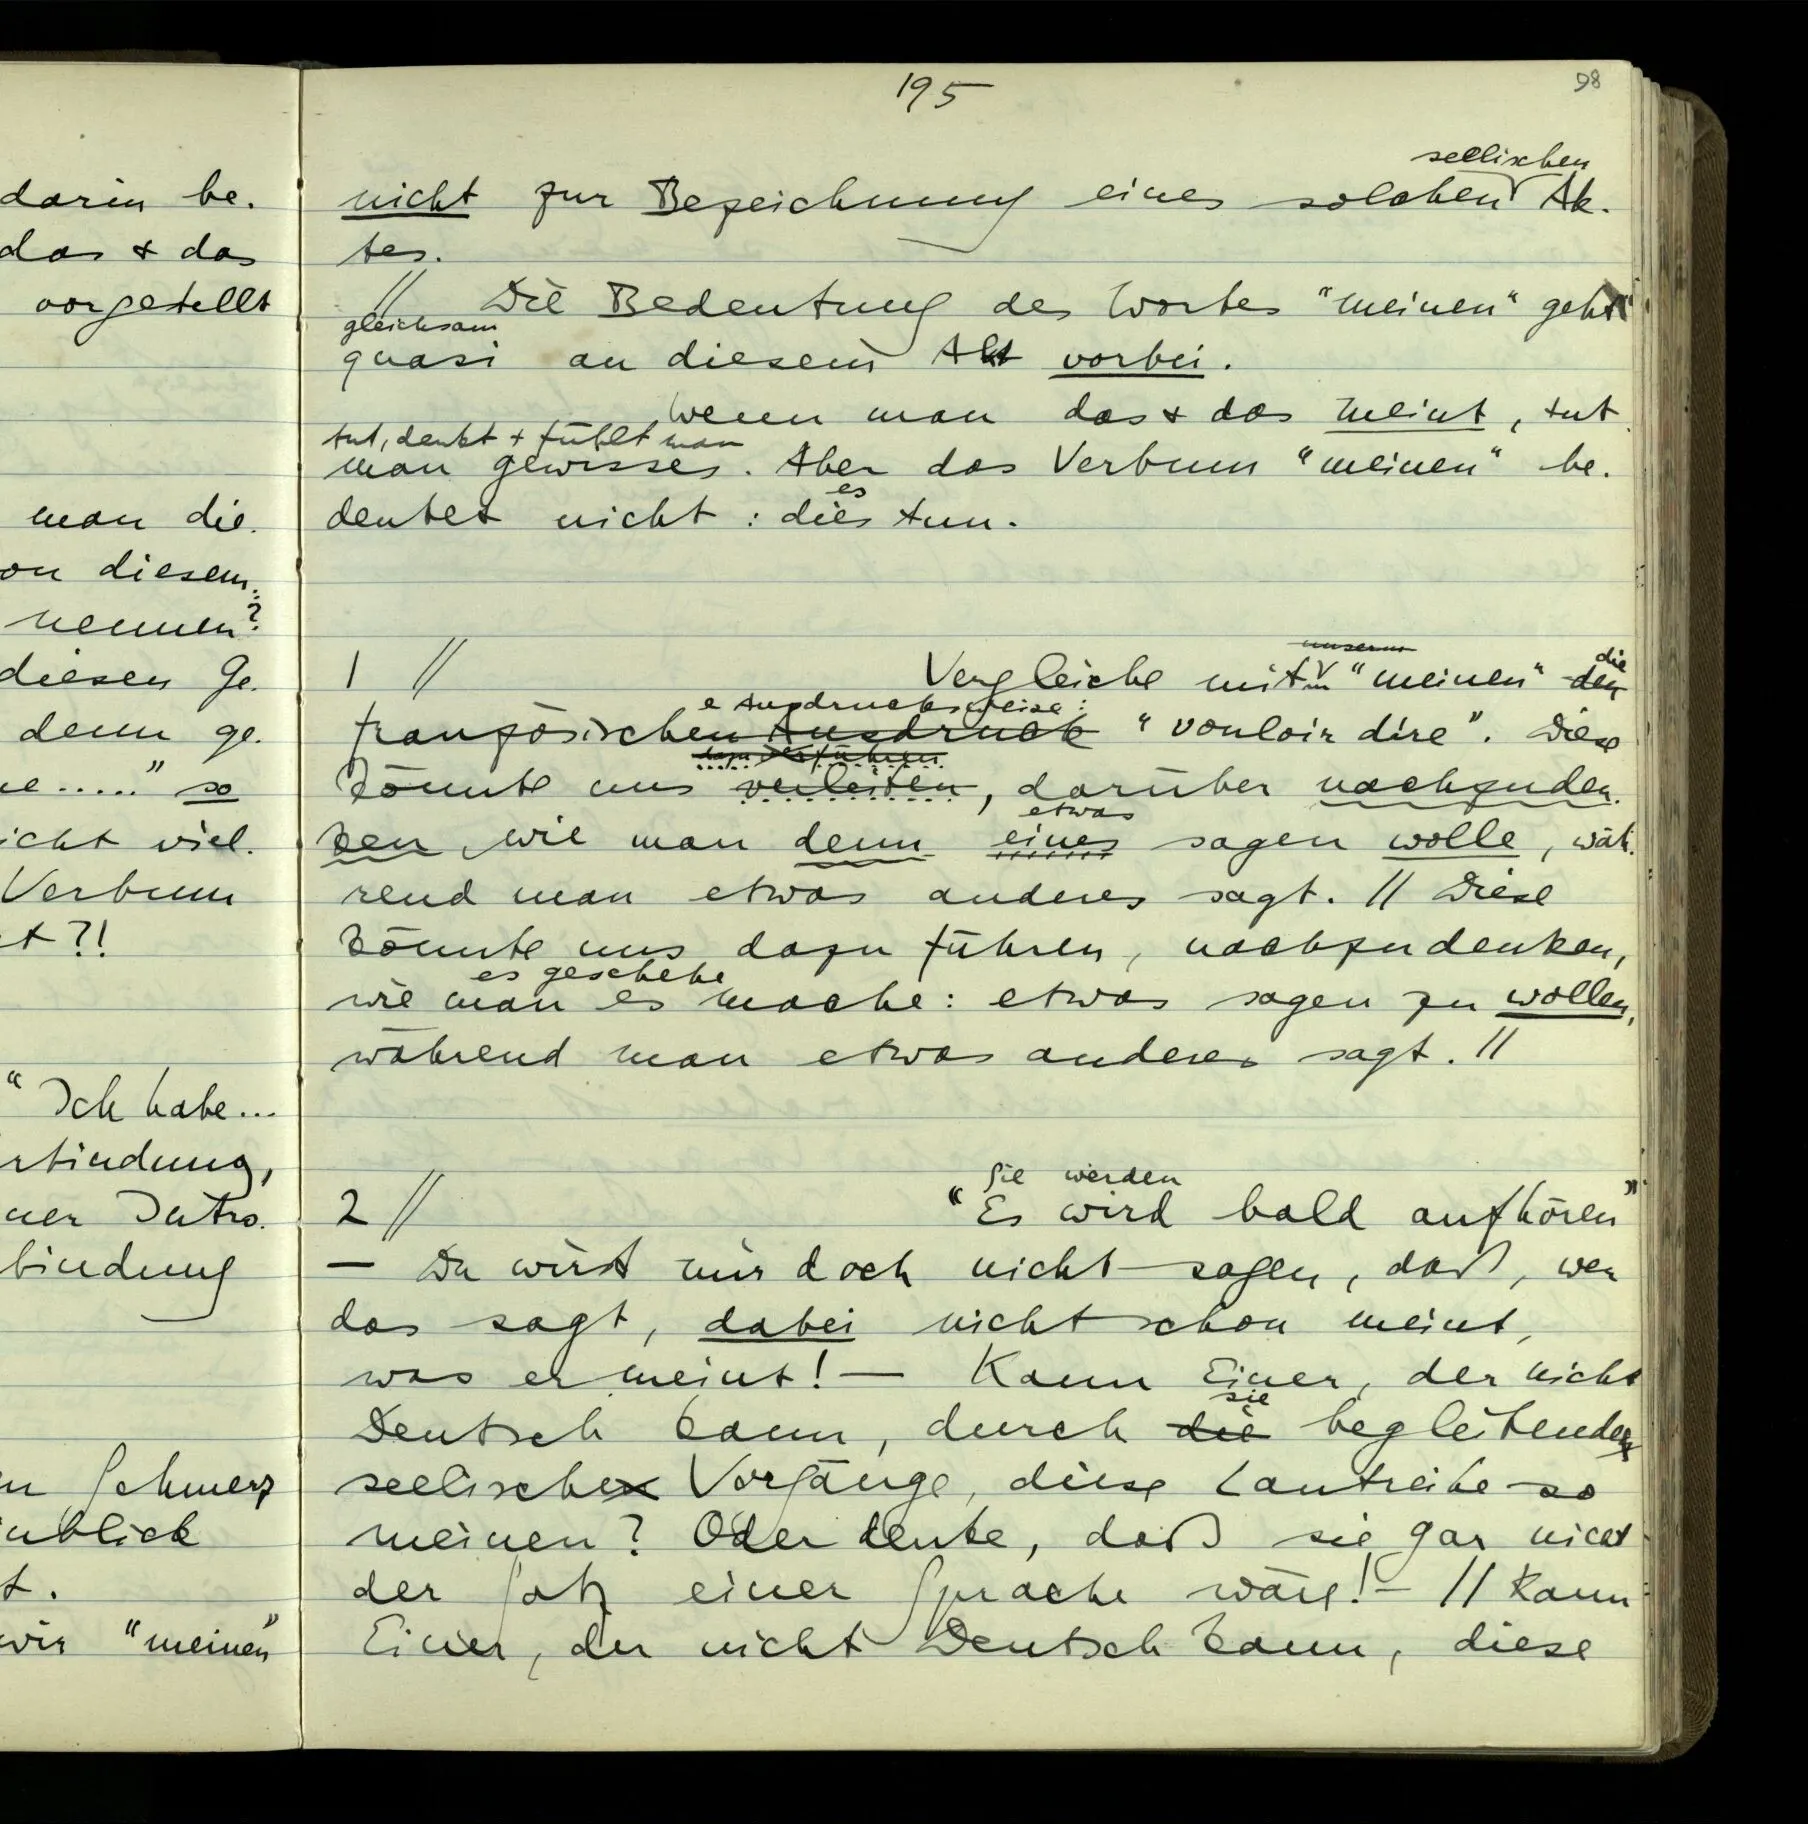 darin be-
das & das
vorgestellt
man die-
on diesem
nennen?
diesen Ge-
denn ge-
ne....." so
icht viel-
Verbum
t?!
"Ich habe...
rbindung,
ner Intro-
bindung
n Schmerz
nblick
t.
wir "meinen"
195
98
seelischen
nicht zur Bezeichnung eines solchen Ak-
tes.
// Die Bedeutung des Wortes "meinen" geht
gleichsam
quasi an diesem Akt vorbei.
Wenn man das & das meint, tut
tut, denkt & fühlt man
man gewisses. Aber das Verbum "meinen" be-
es
deutet nicht: dies tun.
unserm
die
1 // Vergleiche mit "meinen" den
e Ausdrucksweise:
französischen Ausdruck "vouloir dire". Diese
dazu verführen
könnte uns verleiten, darüber nachzuden-
etwas
ken, wie man denn eines sagen wolle, wäh-
rend man etwas anderes sagt. // Diese
könnte uns dazu führen, nachzudenken,
es geschehe
wie man es mache: etwas sagen zu wollen,
während man etwas anderes sagt. //
Sie werden
2 // "Es wird bald aufhören"
– Du wirst mir doch nicht sagen, daß, wer
das sagt, dabei nicht schon meint,
was er meint! – Kann Einer, der nicht
sie
Deutsch kann, durch die begleitenden
seelische Vorgänge, diese Lautreihe so
meinen? Oder denke, daß sie gar nicht
der Satz einer Sprache wäre! – // Kann
Einer, der nicht Deutsch kann, diese